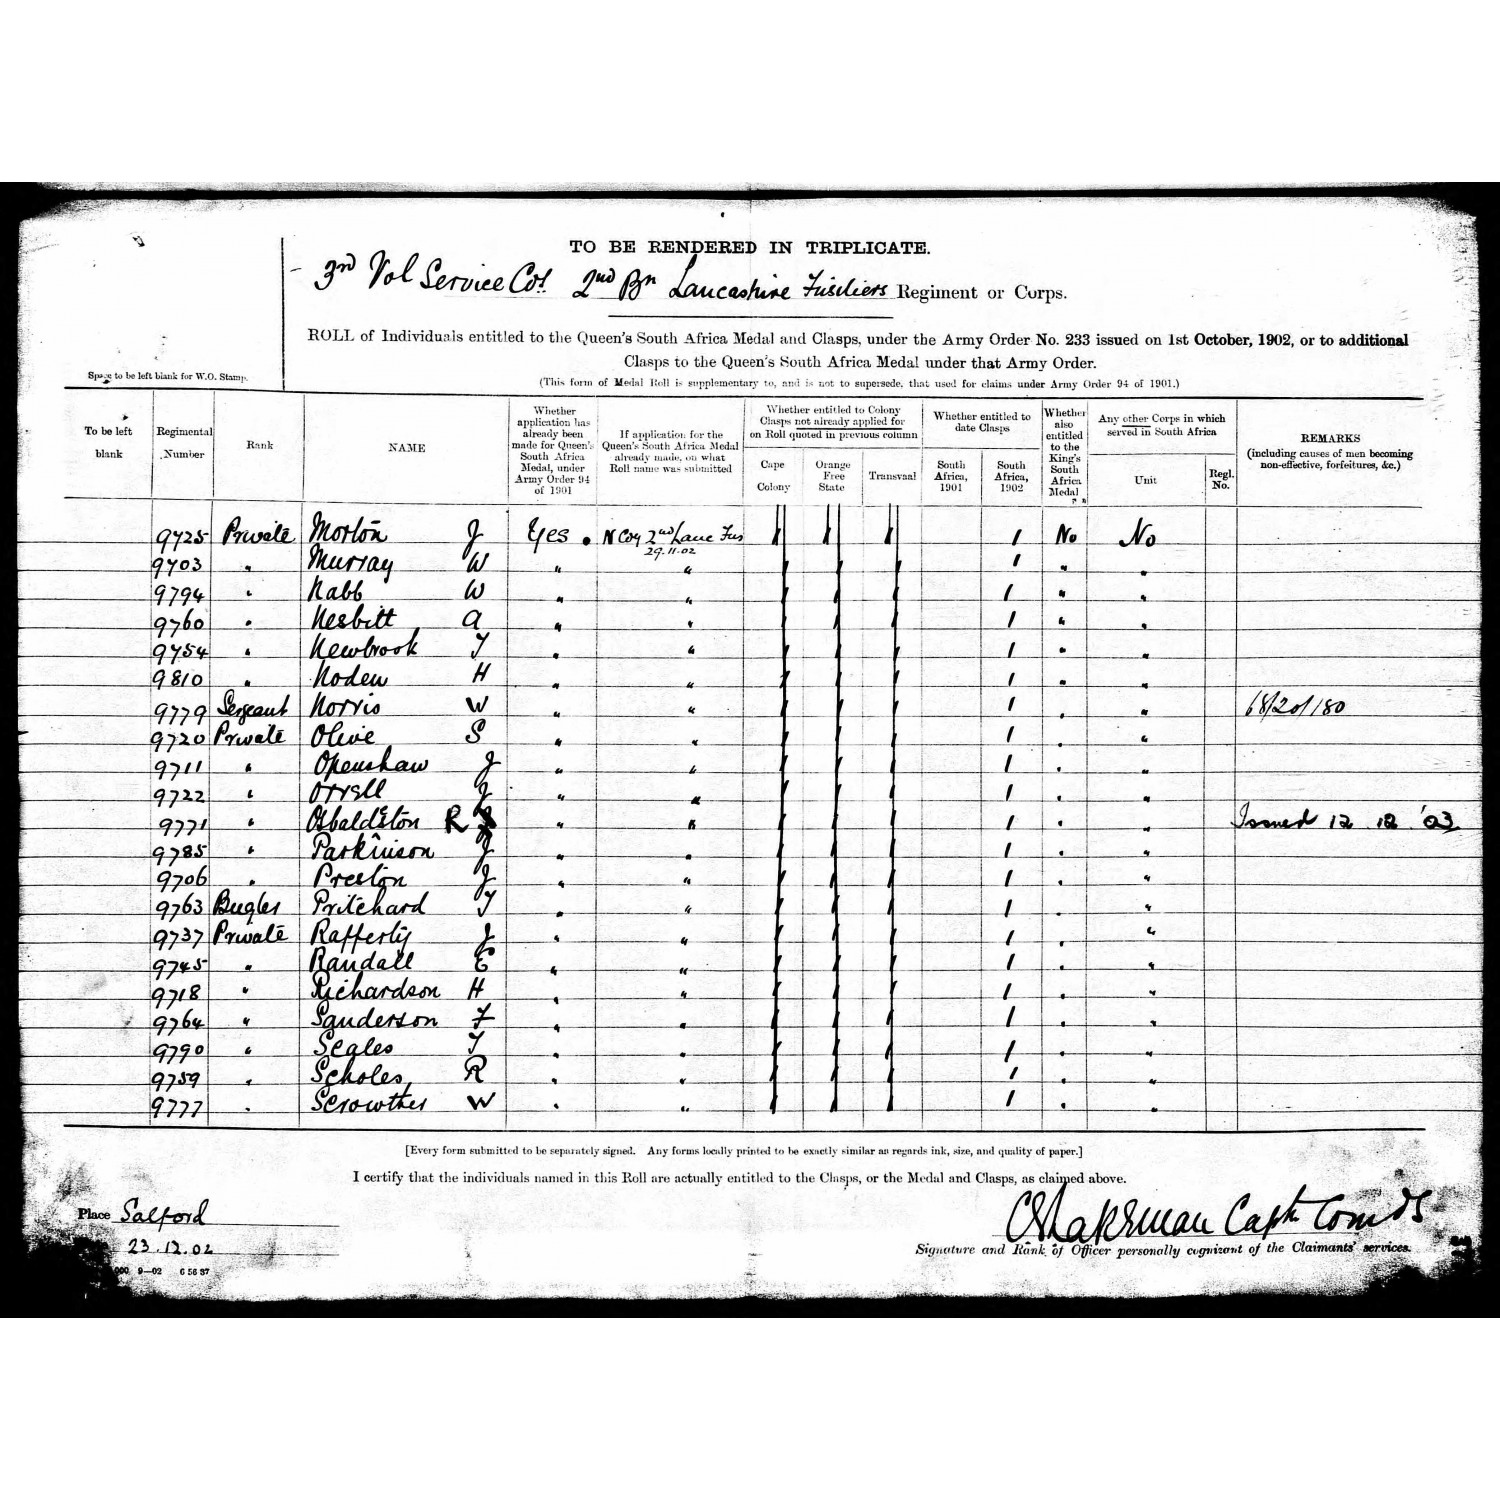 TO BE RENDERED IN TRIPLICATE.
3rd Vol Service Coy. 2nd Bn Lancashire Fusiliers Regiment or Corps.
ROLL of Individuals entitled to the Queen's South Africa Medal and Clasps, under the Army Order No. 233 issued on 1st October, 1902, or to additional
Clasps to the Queen's South Africa Medal under that Army Order.
Space to be left blank for W.O. Stamp.
(This form of Medal Roll is supplementary to, and is not to supersede, that used for claims under Army Order 94 of 1901.)
To be left blank
Regimental Number
Rank
NAME
Whether application has already been made for Queen's South Africa Medal, under Army Order 94 of 1901
If application for the Queen's South Africa Medal already made, on what Roll name was submitted
Whether entitled to Colony Clasps not already applied for on Roll quoted in previous column
Cape Colony
Orange Free State
Transvaal
Whether entitled to date Clasps
South Africa, 1901
South Africa, 1902
Whether also entitled to the King's South Africa Medal
Any other Corps in which served in South Africa
Unit
Regl. No.
REMARKS
(including causes of men becoming non-effective, forfeitures, &c.)
9725 Private Morton J Yes . N Coy 2nd Lanc Fus 29.11.02 1 1 1 1 No No
9703 " Murray W " " 1 1 1 1 " "
9794 " Nabb W " " 1 1 1 1 " "
9760 " Nesbitt A " " 1 1 1 1 " "
9754 " Newbrook T " " 1 1 1 1 " "
9810 " Noden H " " 1 1 1 1 " "
9779 Sergeant Norris W " " 1 1 1 1 " " 68/201/180
9720 Private Olive S " " 1 1 1 1 " "
9711 " Openshaw J " " 1 1 1 1 " "
9722 " Orrell J " " 1 1 1 1 " "
9771 " Osbaldeston R " " 1 1 1 1 " " Issued 12.12.'03
9785 " Parkinson J " " 1 1 1 1 " "
9706 " Preston J " " 1 1 1 1 " "
9763 Bugler Pritchard T " " 1 1 1 1 " "
9737 Private Rafferty J " " 1 1 1 1 " "
9745 " Randall E " " 1 1 1 1 " "
9718 " Richardson H " " 1 1 1 1 " "
9764 " Sanderson F " " 1 1 1 1 " "
9790 " Scales T " " 1 1 1 1 " "
9759 " Scholes R " " 1 1 1 1 " "
9777 " Scrowther W " " 1 1 1 1 " "
[Every form submitted to be separately signed. Any forms locally printed to be exactly similar as regards ink, size, and quality of paper.]
I certify that the individuals named in this Roll are actually entitled to the Clasps, or the Medal and Clasps, as claimed above.
Place Salford
23.12.02
Capt. Comdg
Signature and Rank of Officer personally cognizant of the Claimants' services.
000 9—02 6 56 37